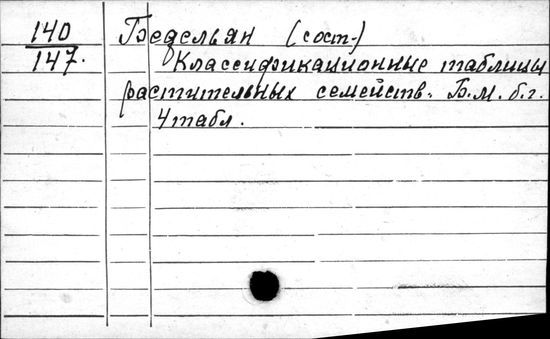 140 Бедельян (сост.)
147. Классификационные таблицы
растительных семейств. Б.М. б.г.
4 табл.